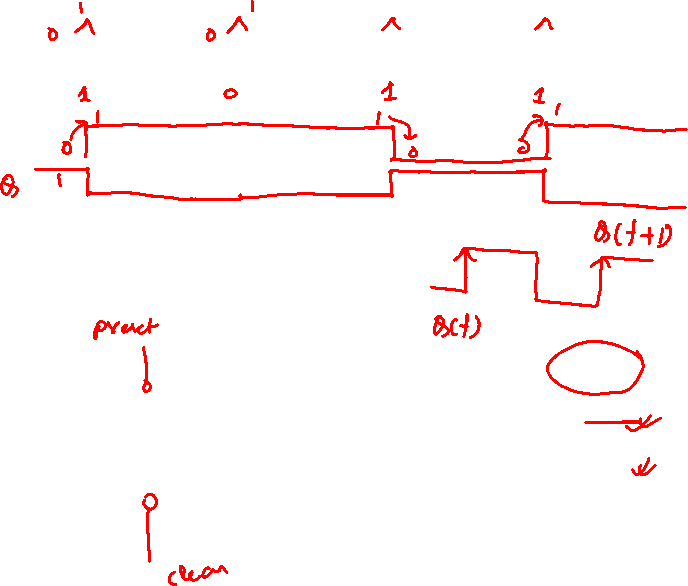 0 1 0 1
1 0 1 1
0 1 1 0 0 1
Q 1
Q(t+1)
Q(t)
preset
clear